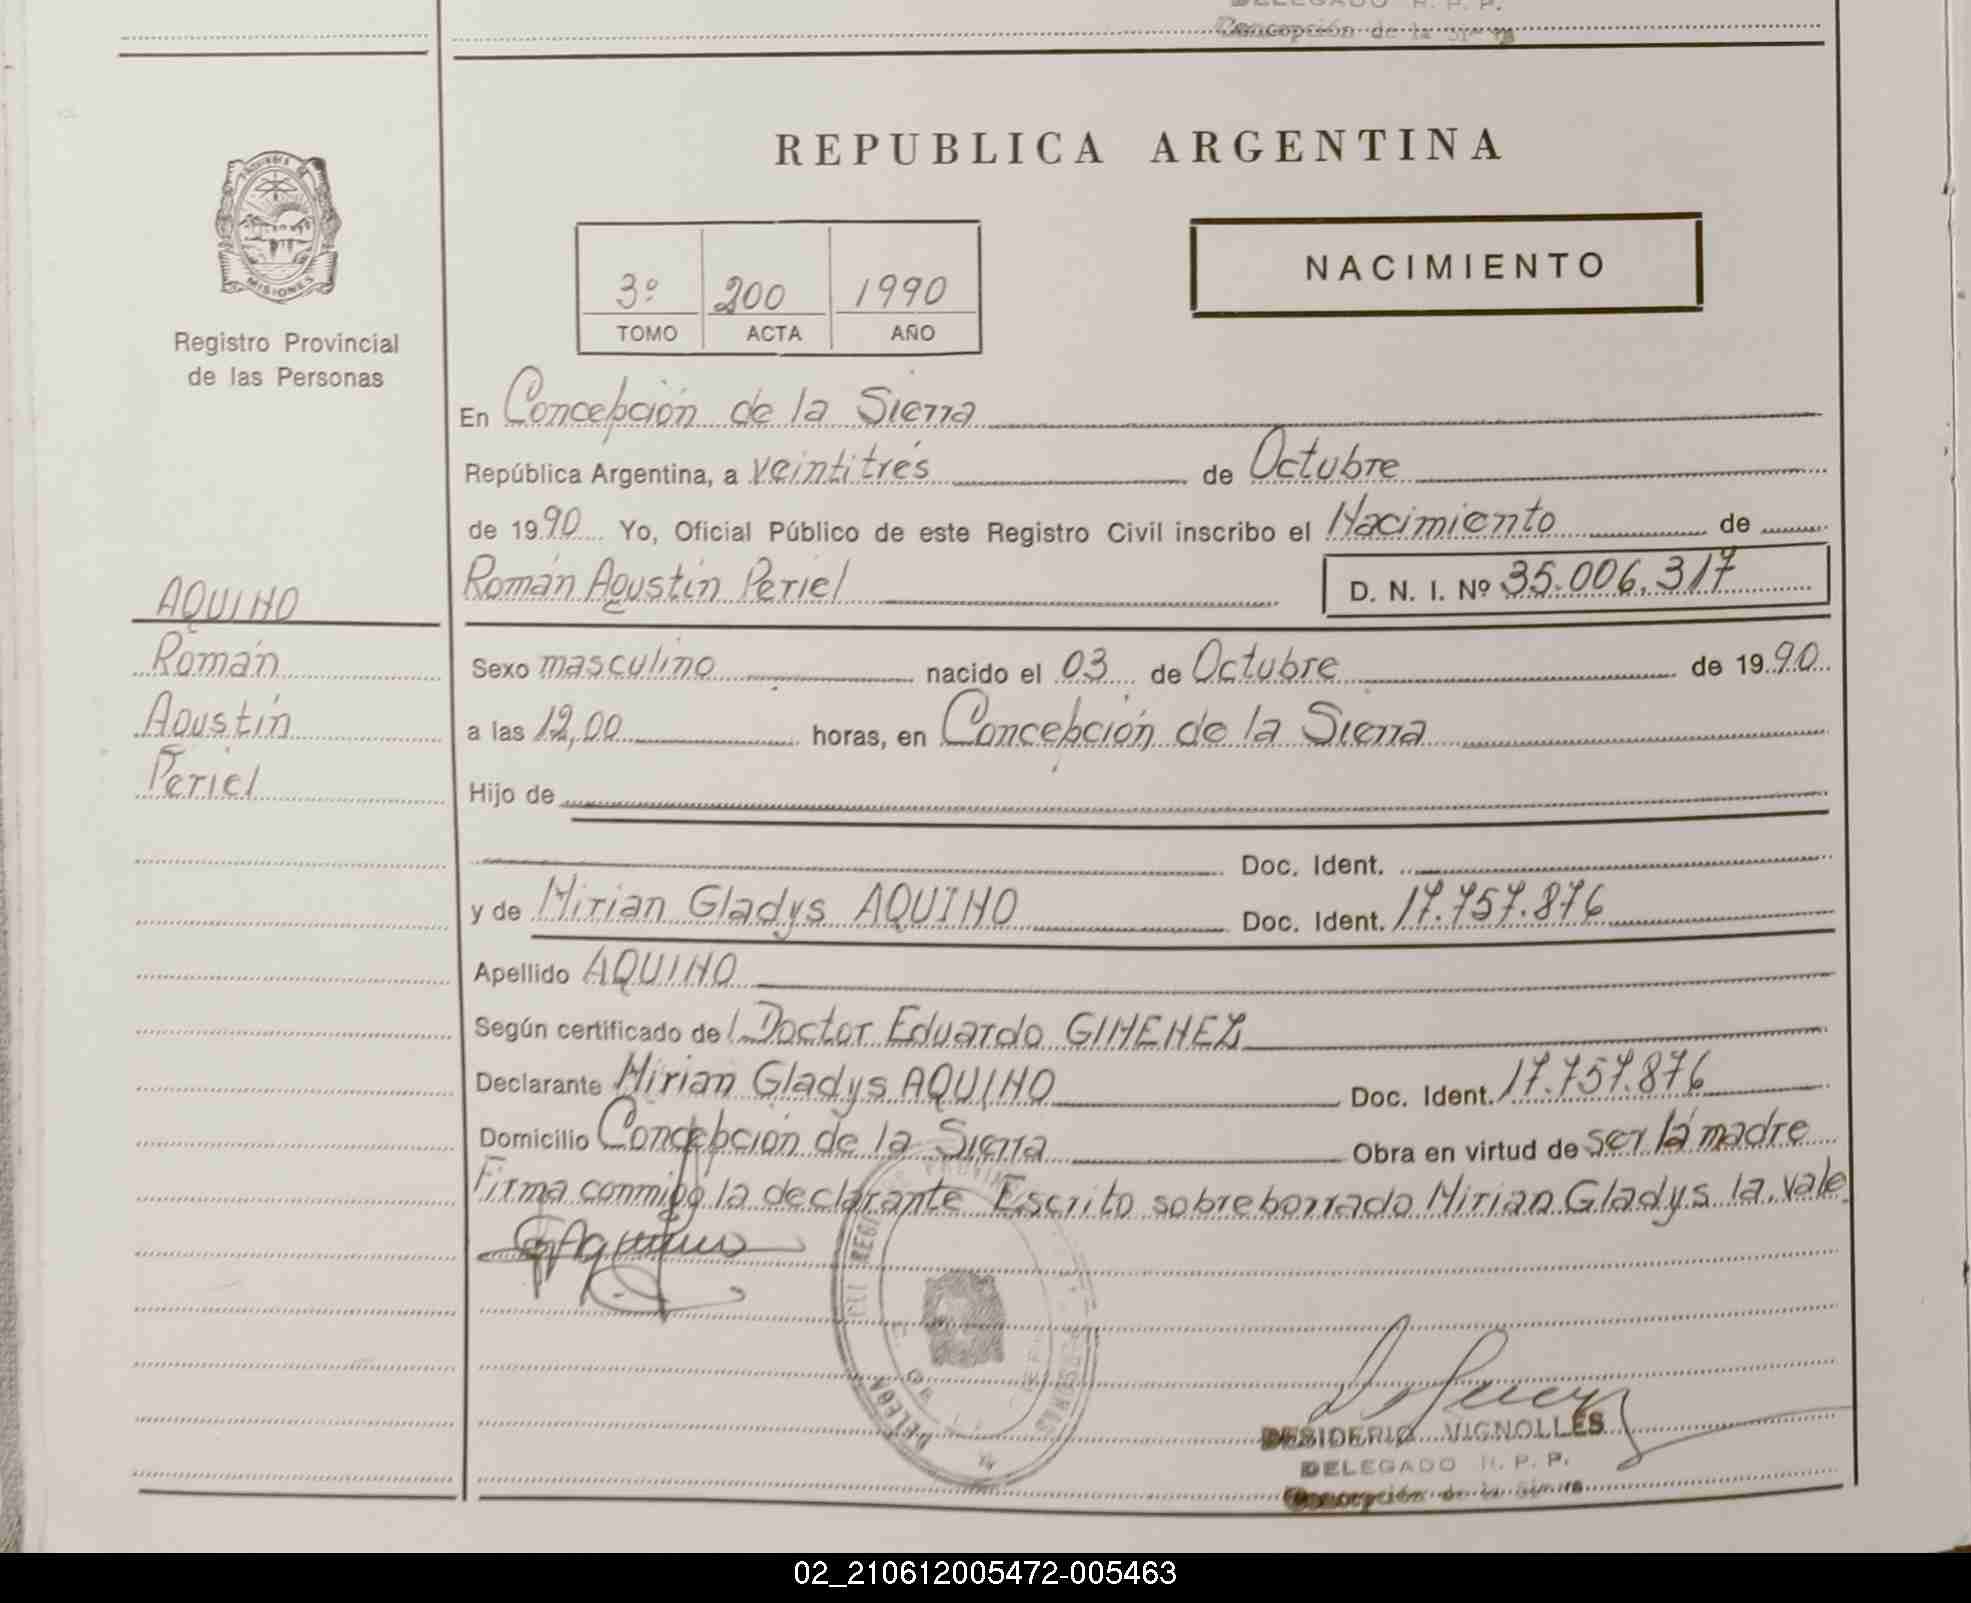 DELEGADO R. P. P.
Concepción de la Sierra
REPUBLICA ARGENTINA
PROVINCIA DE
MISIONES
Registro Provincial
de las Personas
3º 200 1990
TOMO ACTA AÑO
NACIMIENTO
En Concepción de la Sierra
República Argentina, a veintitrés de Octubre
de 1990 Yo, Oficial Público de este Registro Civil inscribo el Nacimiento de
Román Agustín Periel D. N. I. Nº 35.006.317
AQUINO
Román
Agustín
Periel
Sexo masculino nacido el 03 de Octubre de 1990
a las 12,00 horas, en Concepción de la Sierra
Hijo de
Doc. Ident.
y de Mirian Gladys AQUINO Doc. Ident. 17.757.876
Apellido AQUINO
Según certificado del Doctor Eduardo GIMENEZ
Declarante Mirian Gladys AQUINO Doc. Ident. 17.757.876
Domicilio Concepción de la Sierra Obra en virtud de ser la madre
Firma conmigo la declarante Escrito sobreborrado Mirian Gladys la. vale
DESIDERIO VIGNOLLES
DELEGADO R. P. P.
Concepción de la Sierra
02_210612005472-005463